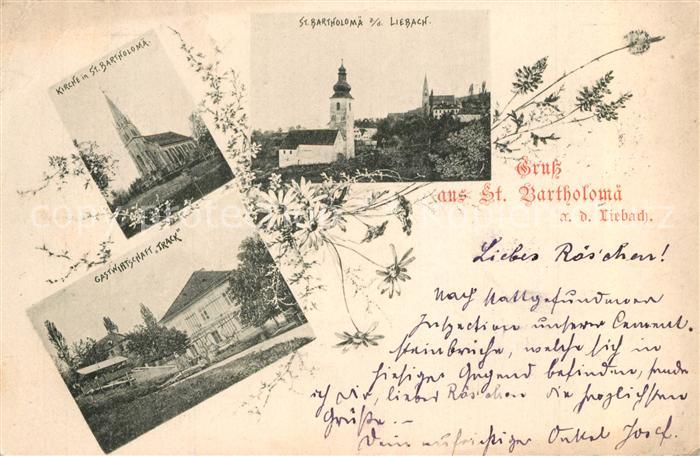 ST. BARTHOLOMÄ a/d. LIEBACH.
KIRCHE in ST. BARTHOLOMÄ.
GASTWIRTSCHAFT „TRACK"
Gruß
aus St. Bartholomä
a. d. Liebach.
Liebes Röschen!
Nach stattgefundener
Inspection unserer Cement-
steinbrüche, welche sich in
hiesiger Gegend befinden, sende
ich dir, liebes Röschen die herzlichsten
Grüße. –
Dein aufrichtiger Onkel Josef.